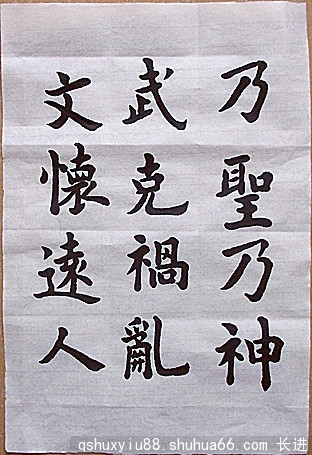 乃聖乃神
武克禍亂
文懷遠人
qshuxyiu88.shuhua66.com 长进